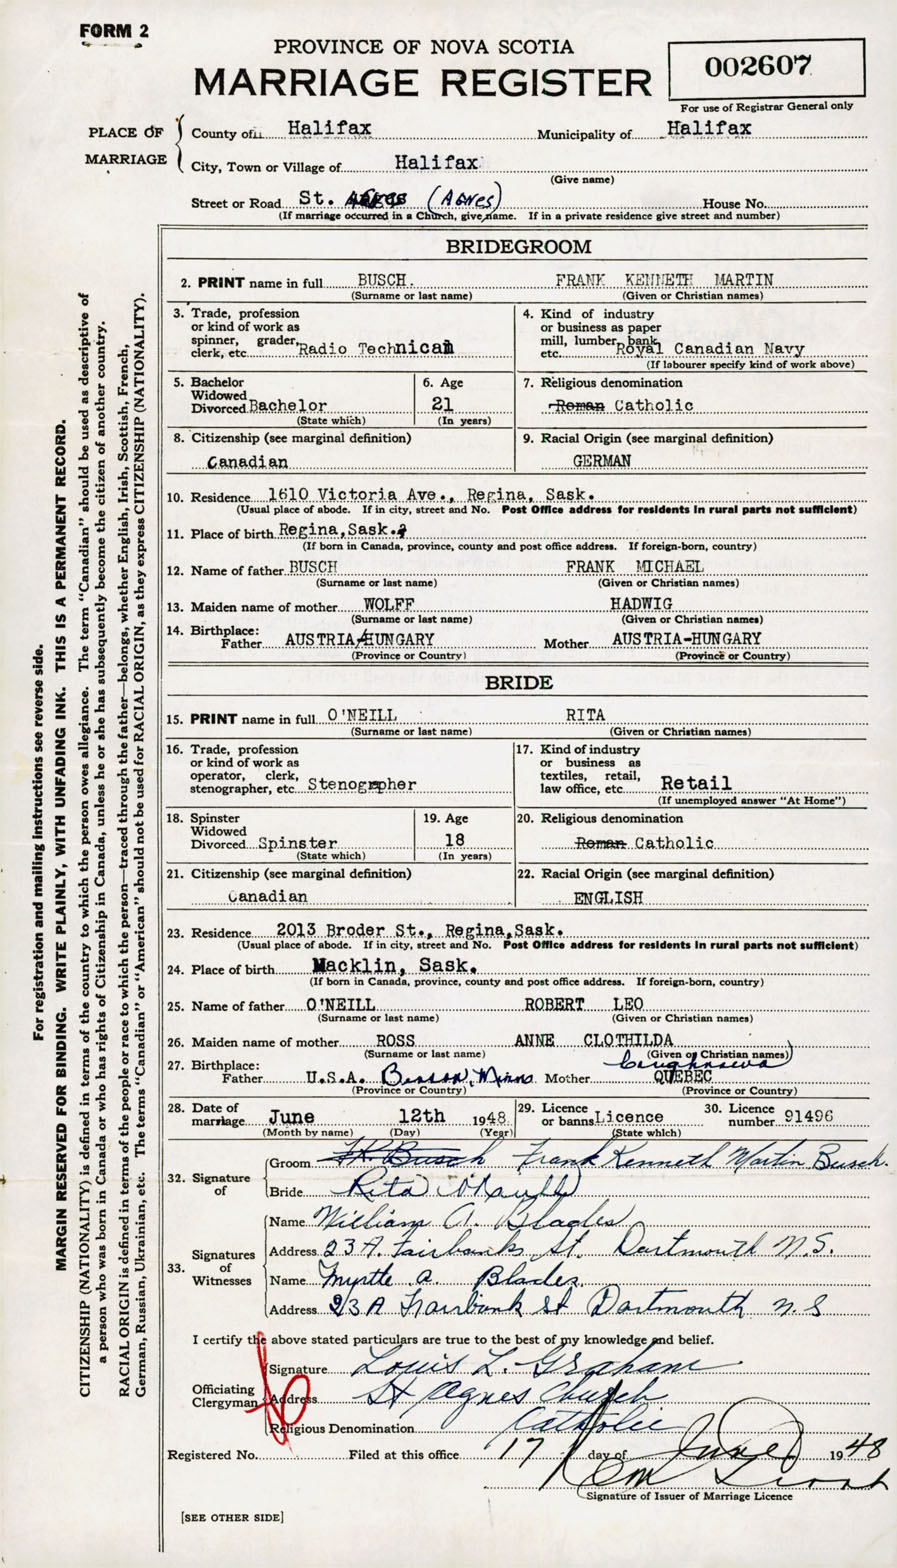 FORM 2
PROVINCE OF NOVA SCOTIA
MARRIAGE REGISTER
002607
For use of Registrar General only
PLACE OF MARRIAGE
County of Halifax Municipality of Halifax
City, Town or Village of Halifax
(Give name)
Street or Road St. (Agnes) House No.
(If marriage occurred in a Church, give name. If in a private residence give street and number)
BRIDEGROOM
2. PRINT name in full BUSCH. FRANK KENNETH MARTIN
(Surname or last name) (Given or Christian names)
3. Trade, profession 4. Kind of industry
or kind of work as or business as paper
spinner, grader, mill, lumber, bank,
clerk, etc. Radio Technican etc. Royal Canadian Navy
(If labourer specify kind of work above)
5. Bachelor 6. Age 7. Religious denomination
Widowed
Divorced Bachelor 21 Roman Catholic
(State which) (In years)
8. Citizenship (see marginal definition) 9. Racial Origin (see marginal definition)
Canadian GERMAN
10. Residence 1610 Victoria Ave., Regina, Sask.
(Usual place of abode. If in city, street and No. Post Office address for residents in rural parts not sufficient)
11. Place of birth Regina,Sask.
(If born in Canada, province, county and post office address. If foreign-born, country)
12. Name of father BUSCH FRANK MICHAEL
(Surname or last name) (Given or Christian names)
13. Maiden name of mother WOLFF HADWIG
(Surname or last name) (Given or Christian names)
14. Birthplace:
Father AUSTRIA-HUNGARY Mother AUSTRIA-HUNGARY
(Province or Country) (Province or Country)
BRIDE
15. PRINT name in full O'NEILL RITA
(Surname or last name) (Given or Christian names)
16. Trade, profession 17. Kind of industry
or kind of work as or business as
operator, clerk, textiles, retail,
stenographer, etc Stenographer law office, etc Retail
(If unemployed answer "At Home")
18. Spinster 19. Age 20. Religious denomination
Widowed
Divorced Spinster 18 Roman Catholic
(State which) (In years)
21. Citizenship (see marginal definition) 22. Racial Origin (see marginal definition)
Canadian ENGLISH
23. Residence 2013 Broder St., Regina,Sask.
(Usual place of abode. If in city, street and No. Post Office address for residents in rural parts not sufficient)
24. Place of birth Macklin, Sask.
(If born in Canada, province, county and post office address. If foreign-born, country)
25. Name of father O'NEILL ROBERT LEO
(Surname or last name) (Given or Christian names)
26. Maiden name of mother ROSS ANNE CLOTHILDA
(Surname or last name) (Given or Christian names)
Caughnawa
27. Birthplace:
Father U.S.A. Benson, Minn. Mother QUEBEC
(Province or Country) (Province or Country)
28. Date of marriage June 12th 1948 29. Licence or banns Licence 30. Licence number 91496
(Month by name) (Day) (Year) (State which)
32. Signature of
Groom FK Busch Frank Kenneth Martin Busch.
Bride Rita O'Neill
33. Signatures of Witnesses
Name William A. Blades
Address 23A. Fairbanks St. Dartmouth N.S.
Name Myrtle A. Blades.
Address 23A Fairbank St Dartmouth N S
I certify the above stated particulars are true to the best of my knowledge and belief.
Officiating Clergyman
Signature Louis L. Graham
Address St Agnes Church
Religious Denomination Catholic
Registered No. Filed at this office 17 day of June 1948
Signature of Issuer of Marriage Licence
[SEE OTHER SIDE]
For registration and mailing instructions see reverse side.
MARGIN RESERVED FOR BINDING. WRITE PLAINLY, WITH UNFADING INK. THIS IS A PERMANENT RECORD.
CITIZENSHIP (NATIONALITY) is defined in terms of the country to which the person owes allegiance. The term "Canadian" should be used as descriptive of
a person who was born in Canada or who has rights of Citizenship in Canada, unless he or she has subsequently become the citizen of another country.
RACIAL ORIGIN is defined in terms of the people or race to which the person—traced through the father—belongs, whether English, Irish, Scottish, French,
German, Russian, Ukrainian, etc. The terms "Canadian" or "American" should not be used for RACIAL ORIGIN, as they express CITIZENSHIP (NATIONALITY).